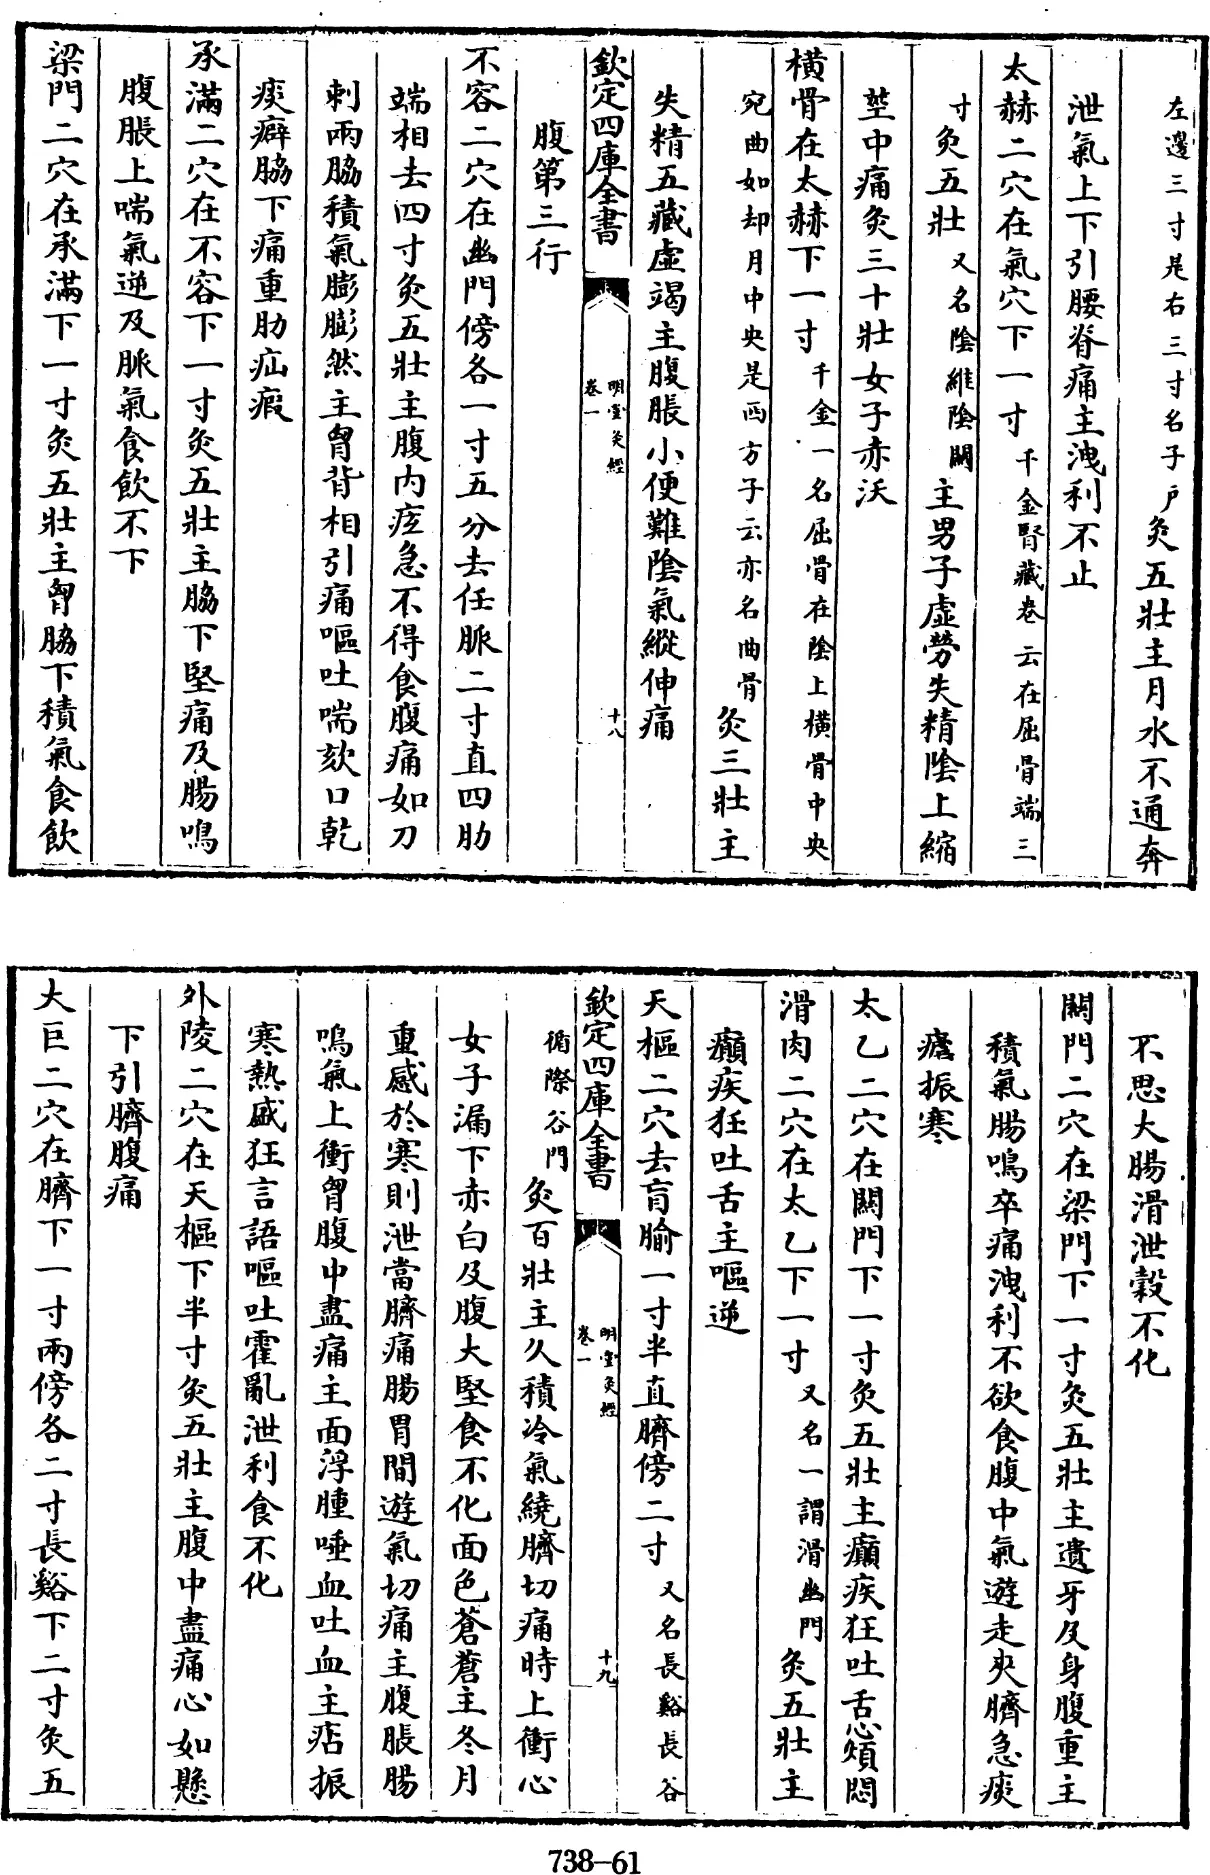 左邊三寸是右三寸名子戶灸五壯主月水不通奔
泄氣上下引腰脊痛主洩利不止
太赫二穴在氣穴下一寸千金腎藏卷云在屈骨端三
寸灸五壯又名陰維陰關主男子虛勞失精陰上縮
莖中痛灸三十壯女子赤沃
橫骨在太赫下一寸千金一名屈骨在陰上橫骨中央
宛曲如却月中央是西方子云亦名曲骨灸三壯主
失精五藏虛竭主腹脹小便難陰氣縱伸痛
欽定四庫全書
明堂灸經
卷一
十八
腹第三行
不容二穴在幽門傍各一寸五分去任脈二寸直四肋
端相去四寸灸五壯主腹内疞急不得食腹痛如刀
刺兩脇積氣膨膨然主胷背相引痛嘔吐喘欬口乾
痰癖脇下痛重肋疝瘕
承滿二穴在不容下一寸灸五壯主脇下堅痛及腸鳴
腹脹上喘氣逆及脈氣食飲不下
梁門二穴在承滿下一寸灸五壯主胷脇下積氣食飲
不思大腸滑泄穀不化
關門二穴在梁門下一寸灸五壯主遺牙及身腹重主
積氣腸鳴卒痛洩利不欲食腹中氣遊走夾臍急痰
瘧振寒
太乙二穴在關門下一寸灸五壯主癲疾狂吐舌心煩悶
滑肉二穴在太乙下一寸又名一謂滑幽門灸五壯主
癲疾狂吐舌主嘔逆
天樞二穴去肓腧一寸半直臍傍二寸又名長谿長谷
欽定四庫全書
明堂灸經
卷一
十九
循際谷門灸百壯主久積冷氣繞臍切痛時上衝心
女子漏下赤白及腹大堅食不化面色蒼蒼主冬月
重感於寒則泄當臍痛腸胃間遊氣切痛主腹脹腸
鳴氣上衝胷腹中盡痛主面浮腫唾血吐血主痁振
寒熱盛狂言語嘔吐霍亂泄利食不化
外陵二穴在天樞下半寸灸五壯主腹中盡痛心如懸
下引臍腹痛
大巨二穴在臍下一寸兩傍各二寸長谿下二寸灸五
738-61